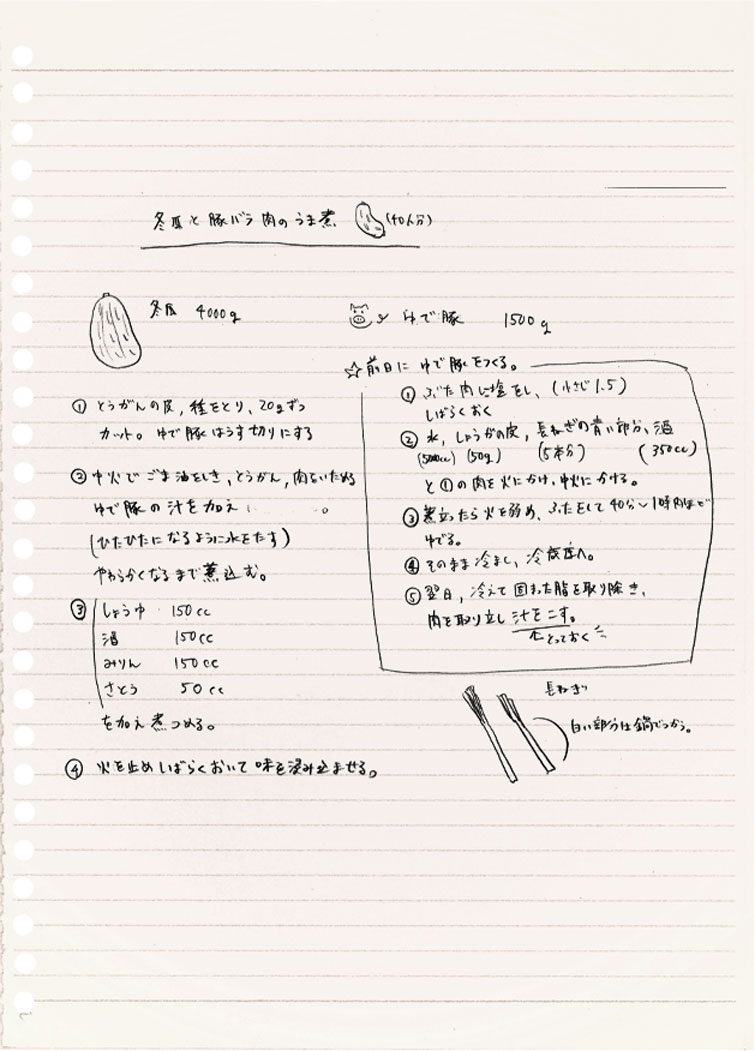 冬瓜と豚バラ肉のうま煮 (40人分)
冬瓜 4000g
ゆで豚 1500g
① とうがんの皮,種をとり、20gずつ
カット。ゆで豚はうす切りにする
② 中火でごま油をしき,とうがん,肉をいため
ゆで豚の汁を加え 。
(ひたひたになるように水をたす)
やわらかくなるまで煮込む。
③ しょうゆ 150cc
酒 150cc
みりん 150cc
さとう 50cc
を加え煮つめる。
④ 火を止めしばらくおいて味を浸み込ませる。
☆前日にゆで豚をつくる。
① ぶた肉に塩をし、(小さじ1.5)
しばらくおく
② 水,しょうがの皮,長ねぎの青い部分、酒
(5000cc) (50g) (5本分) (350cc)
と①の肉を火にかけ、中火にかける。
③ 煮立ったら火を弱め、ふたをして40分〜1時間ほど
ゆでる。
④ そのまま冷まし、冷蔵庫へ。
⑤ 翌日,冷えて固まった脂を取り除き、
肉を取り出し汁をこす。
とっておく
長ねぎ
白い部分は鍋でつかう。